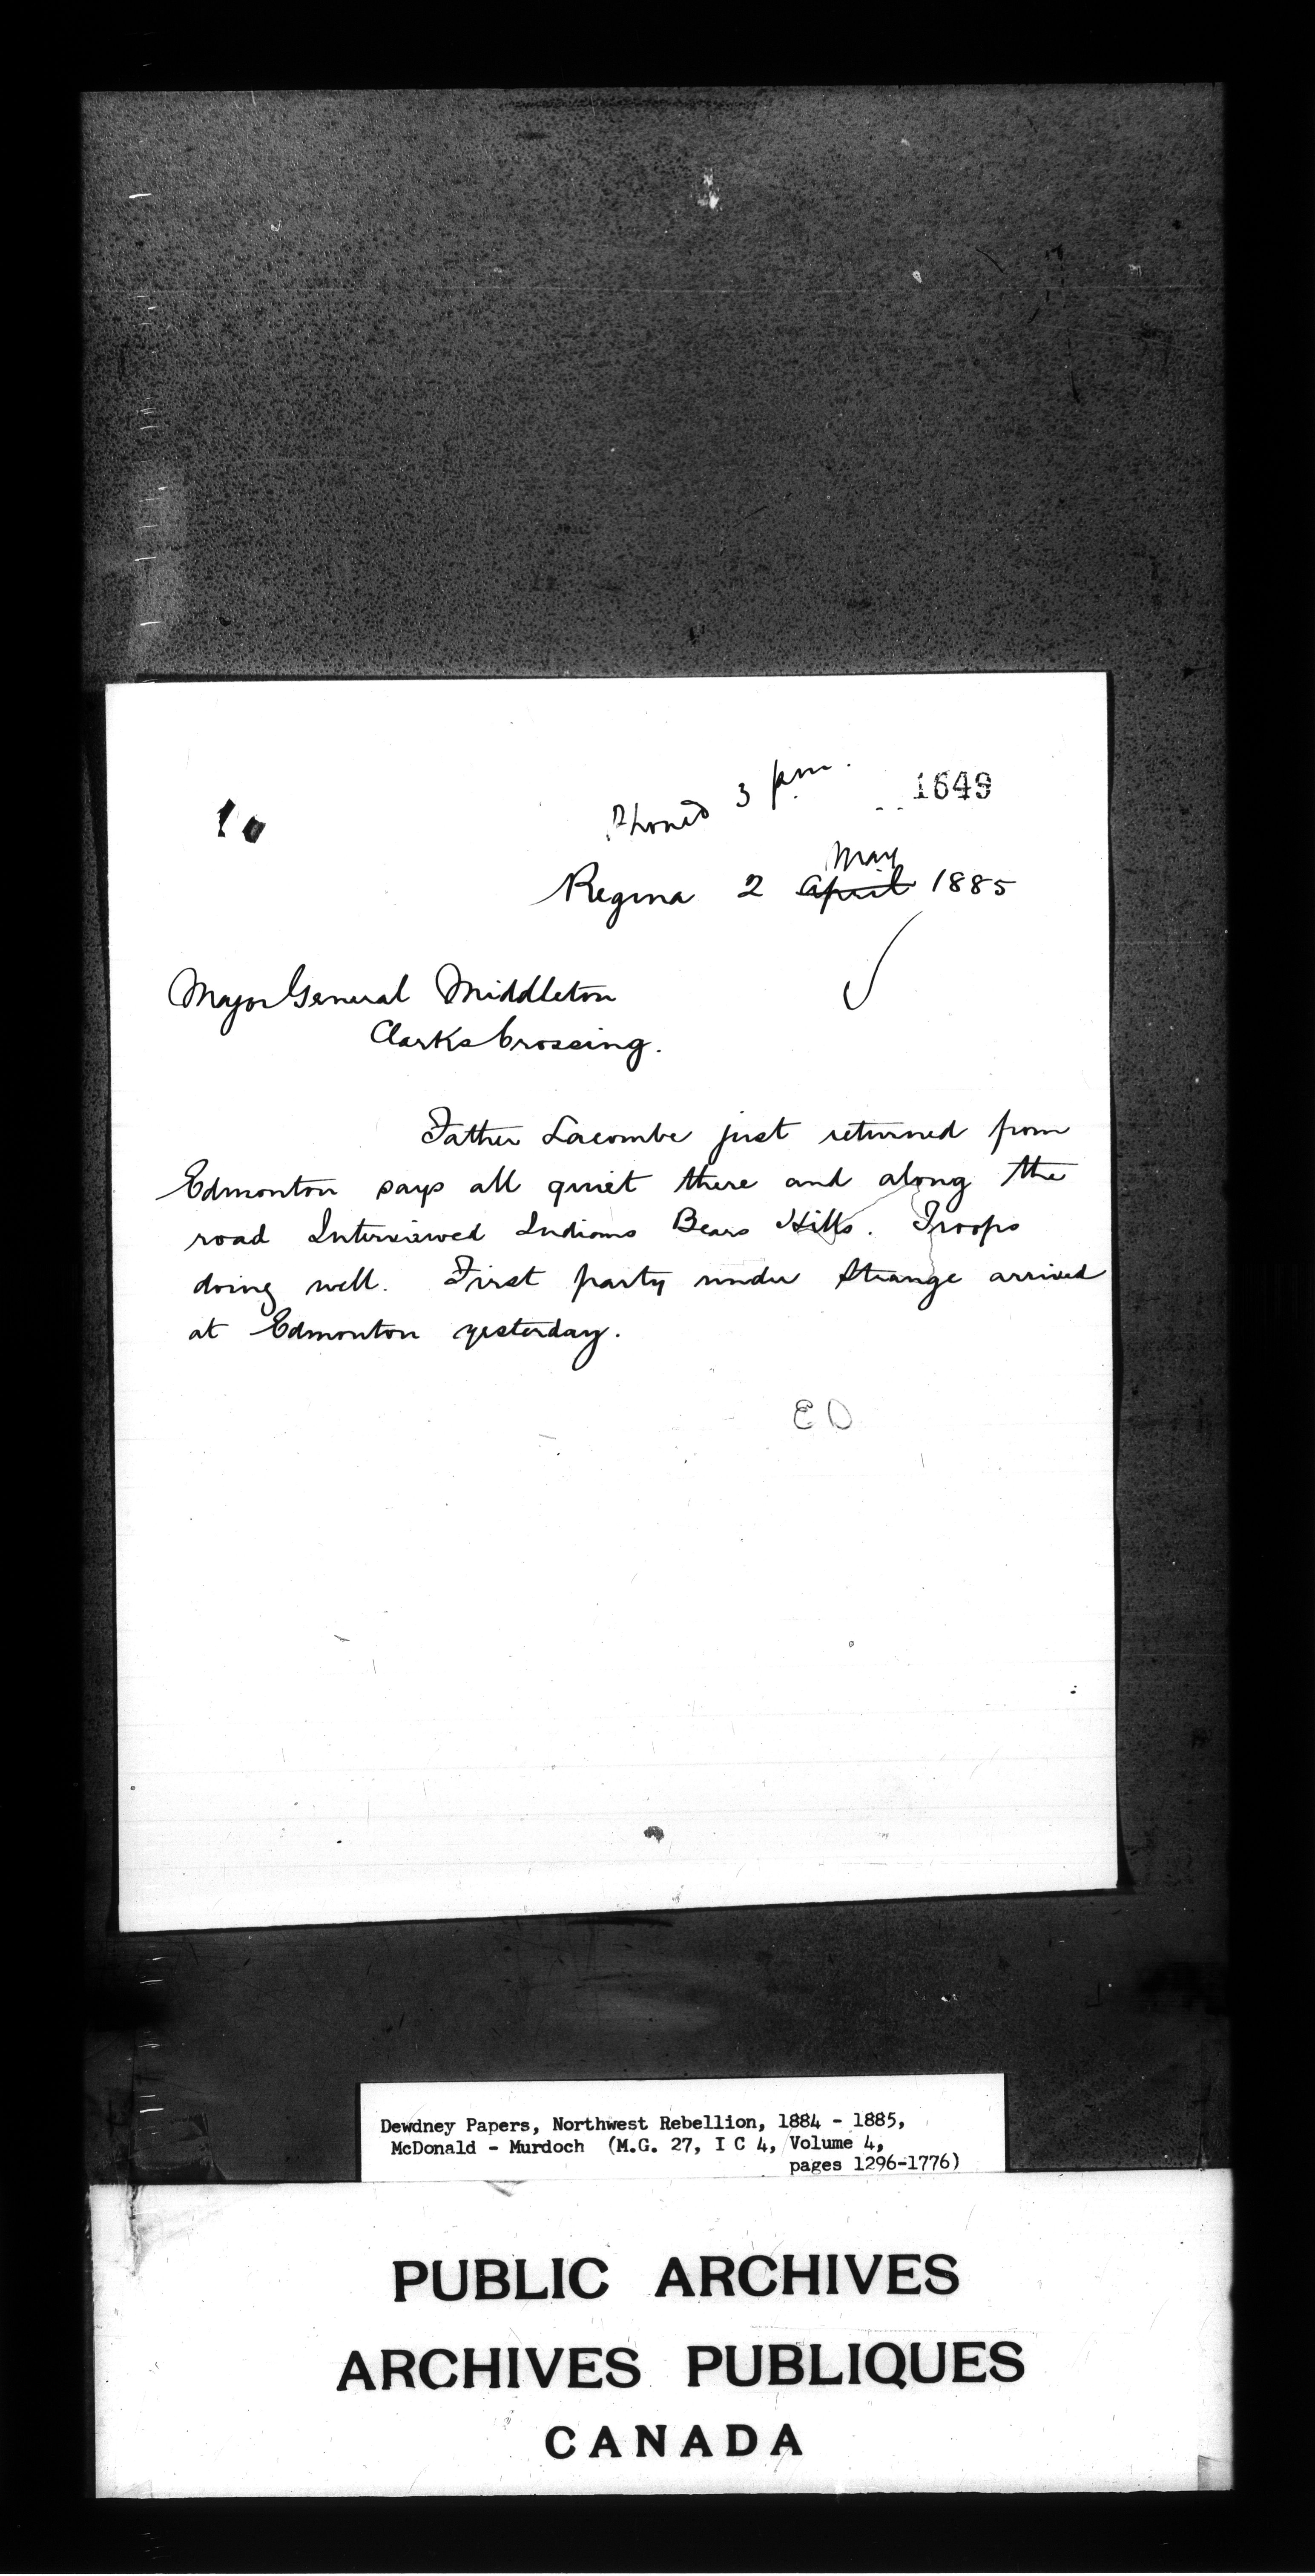 Phoned 3 pm.
1649
10
May
Regina 2 April 1885
Major General Middleton
Clarks Crossing.
Father Lacombe just returned from
Edmonton says all quiet there and along the
road Interviewed Indians Bears Hills. Troops
doing well. First party under Strange arrived
at Edmonton yesterday.
ED
Dewdney Papers, Northwest Rebellion, 1884 - 1885,
McDonald - Murdoch (M.G. 27, I C 4, Volume 4,
pages 1296-1776)
PUBLIC ARCHIVES
ARCHIVES PUBLIQUES
CANADA